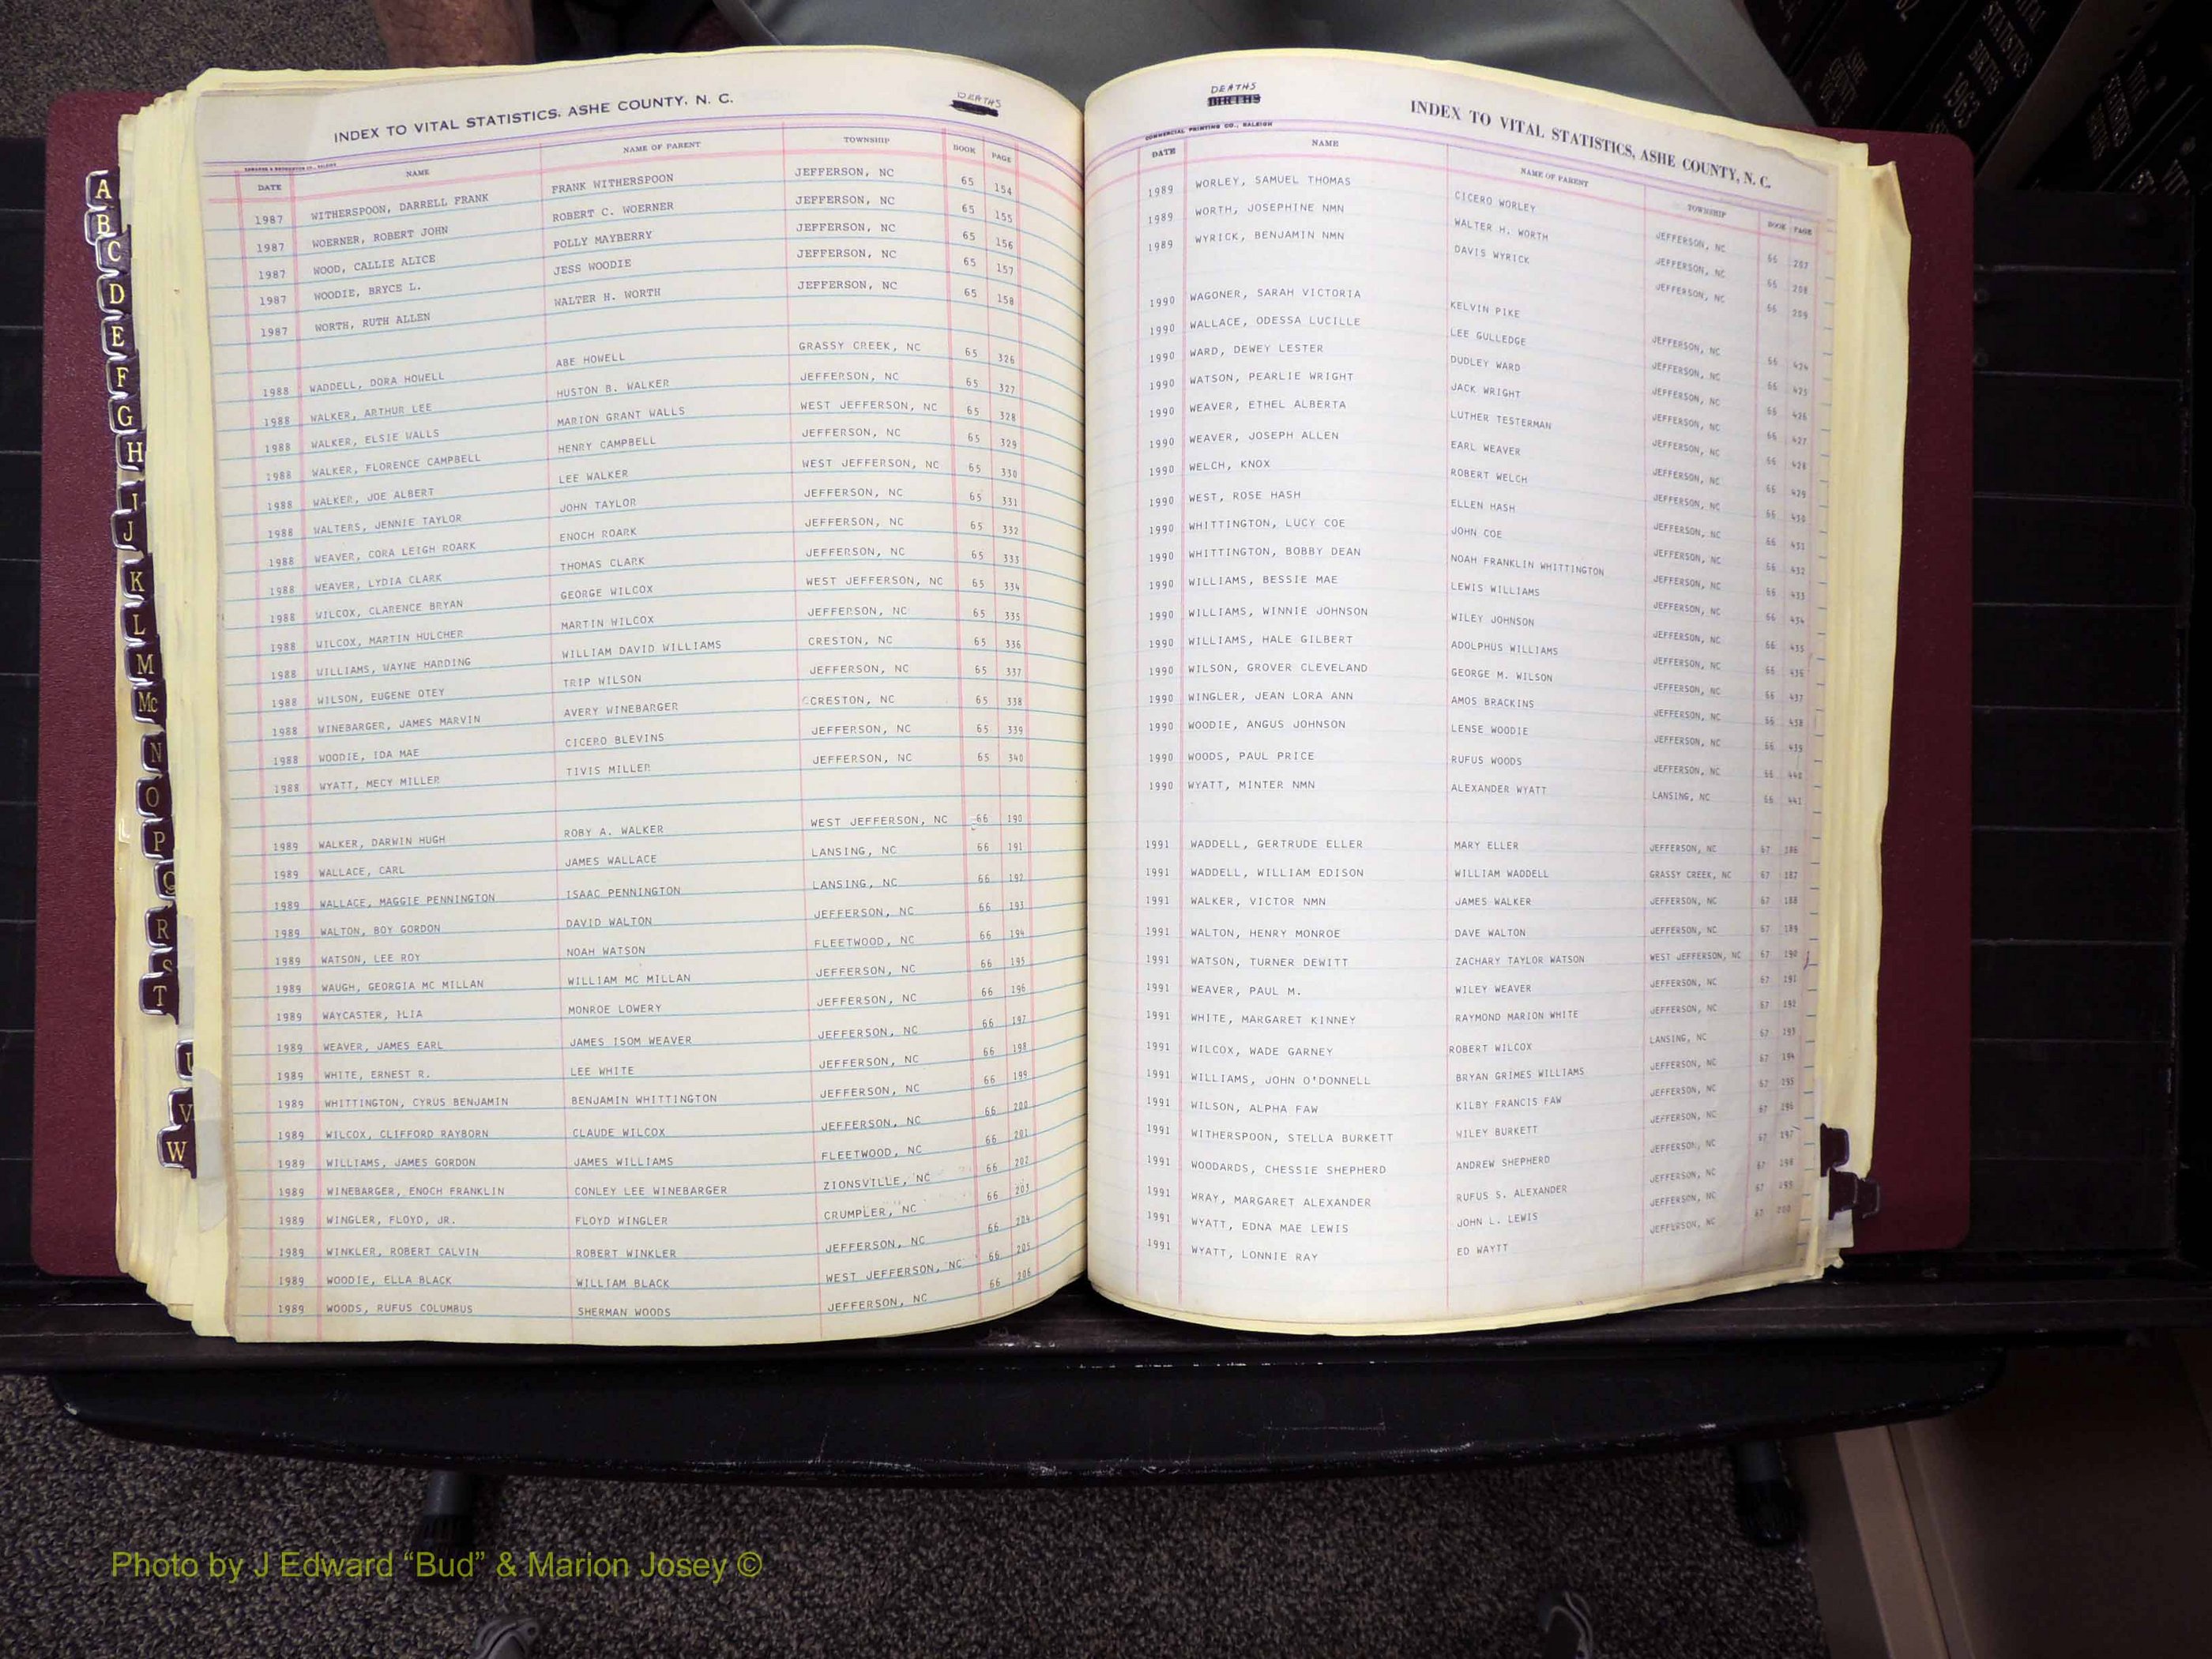 INDEX TO VITAL STATISTICS, ASHE COUNTY, N. C. DEATHS
DATE NAME NAME OF PARENT TOWNSHIP BOOK PAGE
1987 WITHERSPOON, DARRELL FRANK FRANK WITHERSPOON JEFFERSON, NC 65 154
1987 WOERNER, ROBERT JOHN ROBERT C. WOERNER JEFFERSON, NC 65 155
1987 WOOD, CALLIE ALICE POLLY MAYBERRY JEFFERSON, NC 65 156
1987 WOODIE, BRYCE L. JESS WOODIE JEFFERSON, NC 65 157
1987 WORTH, RUTH ALLEN WALTER H. WORTH JEFFERSON, NC 65 158
1988 WADDELL, DORA HOWELL ABE HOWELL GRASSY CREEK, NC 65 326
1988 WALKER, ARTHUR LEE HUSTON B. WALKER JEFFERSON, NC 65 327
1988 WALKER, ELSIE WALLS MARION GRANT WALLS WEST JEFFERSON, NC 65 328
1988 WALKER, FLORENCE CAMPBELL HENRY CAMPBELL JEFFERSON, NC 65 329
1988 WALKER, JOE ALBERT LEE WALKER WEST JEFFERSON, NC 65 330
1988 WALTERS, JENNIE TAYLOR JOHN TAYLOR JEFFERSON, NC 65 331
1988 WEAVER, CORA LEIGH ROARK ENOCH ROARK JEFFERSON, NC 65 332
1988 WEAVER, LYDIA CLARK THOMAS CLARK JEFFERSON, NC 65 333
1988 WILCOX, CLARENCE BRYAN GEORGE WILCOX WEST JEFFERSON, NC 65 334
1988 WILCOX, MARTIN HULCHER MARTIN WILCOX JEFFERSON, NC 65 335
1988 WILLIAMS, WAYNE HARDING WILLIAM DAVID WILLIAMS CRESTON, NC 65 336
1988 WILSON, EUGENE OTEY TRIP WILSON JEFFERSON, NC 65 337
1988 WINEBARGER, JAMES MARVIN AVERY WINEBARGER CCRESTON, NC 65 338
1988 WOODIE, IDA MAE CICERO BLEVINS JEFFERSON, NC 65 339
1988 WYATT, MECY MILLER TIVIS MILLER JEFFERSON, NC 65 340
1989 WALKER, DARWIN HUGH ROBY A. WALKER WEST JEFFERSON, NC 66 190
1989 WALLACE, CARL JAMES WALLACE LANSING, NC 66 191
1989 WALLACE, MAGGIE PENNINGTON ISAAC PENNINGTON LANSING, NC 66 192
1989 WALTON, BOY GORDON DAVID WALTON JEFFERSON, NC 66 193
1989 WATSON, LEE ROY NOAH WATSON FLEETWOOD, NC 66 194
1989 WAUGH, GEORGIA MC MILLAN WILLIAM MC MILLAN JEFFERSON, NC 66 195
1989 WAYCASTER, ILIA MONROE LOWERY JEFFERSON, NC 66 196
1989 WEAVER, JAMES EARL JAMES ISOM WEAVER JEFFERSON, NC 66 197
1989 WHITE, ERNEST R. LEE WHITE JEFFERSON, NC 66 198
1989 WHITTINGTON, CYRUS BENJAMIN BENJAMIN WHITTINGTON JEFFERSON, NC 66 199
1989 WILCOX, CLIFFORD RAYBORN CLAUDE WILCOX JEFFERSON, NC 66 200
1989 WILLIAMS, JAMES GORDON JAMES WILLIAMS FLEETWOOD, NC 66 201
1989 WINEBARGER, ENOCH FRANKLIN CONLEY LEE WINEBARGER ZIONSVILLE, NC 66 202
1989 WINGLER, FLOYD, JR. FLOYD WINGLER CRUMPLER, NC 66 203
1989 WINKLER, ROBERT CALVIN ROBERT WINKLER JEFFERSON, NC 66 204
1989 WOODIE, ELLA BLACK WILLIAM BLACK WEST JEFFERSON, NC 66 205
1989 WOODS, RUFUS COLUMBUS SHERMAN WOODS JEFFERSON, NC 66 206
DEATHS INDEX TO VITAL STATISTICS, ASHE COUNTY, N. C.
COMMERCIAL PRINTING CO., RALEIGH
DATE NAME NAME OF PARENT TOWNSHIP BOOK PAGE
1989 WORLEY, SAMUEL THOMAS CICERO WORLEY JEFFERSON, NC 66 207
1989 WORTH, JOSEPHINE NMN WALTER H. WORTH JEFFERSON, NC 66 208
1989 WYRICK, BENJAMIN NMN DAVIS WYRICK JEFFERSON, NC 66 209
1990 WAGONER, SARAH VICTORIA KELVIN PIKE JEFFERSON, NC 66 424
1990 WALLACE, ODESSA LUCILLE LEE GULLEDGE JEFFERSON, NC 66 425
1990 WARD, DEWEY LESTER DUDLEY WARD JEFFERSON, NC 66 426
1990 WATSON, PEARLIE WRIGHT JACK WRIGHT JEFFERSON, NC 66 427
1990 WEAVER, ETHEL ALBERTA LUTHER TESTERMAN JEFFERSON, NC 66 428
1990 WEAVER, JOSEPH ALLEN EARL WEAVER JEFFERSON, NC 66 429
1990 WELCH, KNOX ROBERT WELCH JEFFERSON, NC 66 430
1990 WEST, ROSE HASH ELLEN HASH JEFFERSON, NC 66 431
1990 WHITTINGTON, LUCY COE JOHN COE JEFFERSON, NC 66 432
1990 WHITTINGTON, BOBBY DEAN NOAH FRANKLIN WHITTINGTON JEFFERSON, NC 66 433
1990 WILLIAMS, BESSIE MAE LEWIS WILLIAMS JEFFERSON, NC 66 434
1990 WILLIAMS, WINNIE JOHNSON WILEY JOHNSON JEFFERSON, NC 66 435
1990 WILLIAMS, HALE GILBERT ADOLPHUS WILLIAMS JEFFERSON, NC 66 436
1990 WILSON, GROVER CLEVELAND GEORGE M. WILSON JEFFERSON, NC 66 437
1990 WINGLER, JEAN LORA ANN AMOS BRACKINS JEFFERSON, NC 66 438
1990 WOODIE, ANGUS JOHNSON LENSE WOODIE JEFFERSON, NC 66 439
1990 WOODS, PAUL PRICE RUFUS WOODS JEFFERSON, NC 66 440
1990 WYATT, MINTER NMN ALEXANDER WYATT LANSING, NC 66 441
1991 WADDELL, GERTRUDE ELLER MARY ELLER JEFFERSON, NC 67 186
1991 WADDELL, WILLIAM EDISON WILLIAM WADDELL GRASSY CREEK, NC 67 187
1991 WALKER, VICTOR NMN JAMES WALKER JEFFERSON, NC 67 188
1991 WALTON, HENRY MONROE DAVE WALTON JEFFERSON, NC 67 189
1991 WATSON, TURNER DEWITT ZACHARY TAYLOR WATSON WEST JEFFERSON, NC 67 190
1991 WEAVER, PAUL M. WILEY WEAVER JEFFERSON, NC 67 191
1991 WHITE, MARGARET KINNEY RAYMOND MARION WHITE JEFFERSON, NC 67 192
1991 WILCOX, WADE GARNEY ROBERT WILCOX LANSING, NC 67 193
1991 WILLIAMS, JOHN O'DONNELL BRYAN GRIMES WILLIAMS JEFFERSON, NC 67 194
1991 WILSON, ALPHA FAW KILBY FRANCIS FAW JEFFERSON, NC 67 195
1991 WITHERSPOON, STELLA BURKETT WILEY BURKETT JEFFERSON, NC 67 196
1991 WOODARDS, CHESSIE SHEPHERD ANDREW SHEPHERD JEFFERSON, NC 67 197
1991 WRAY, MARGARET ALEXANDER RUFUS S. ALEXANDER JEFFERSON, NC 67 198
1991 WYATT, EDNA MAE LEWIS JOHN L. LEWIS JEFFERSON, NC 67 199
1991 WYATT, LONNIE RAY ED WAYTT JEFFERSON, NC 67 200
A
B
C
D
E
F
G
H
I
J
K
L
M
Mc
N
O
P
Q
R
S
T
U
V
W
VITAL STATISTICS BIRTHS 1963
Photo by J Edward “Bud” & Marion Josey ©